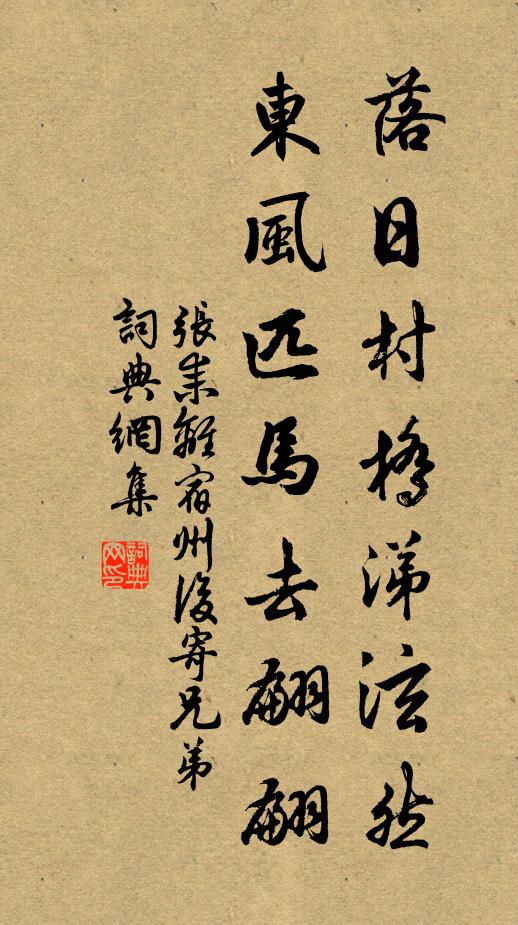 落日村橋涕泫然
東風匹馬去翩翩
張耒離宿州後寄兄弟
詞典網集
詞典網印